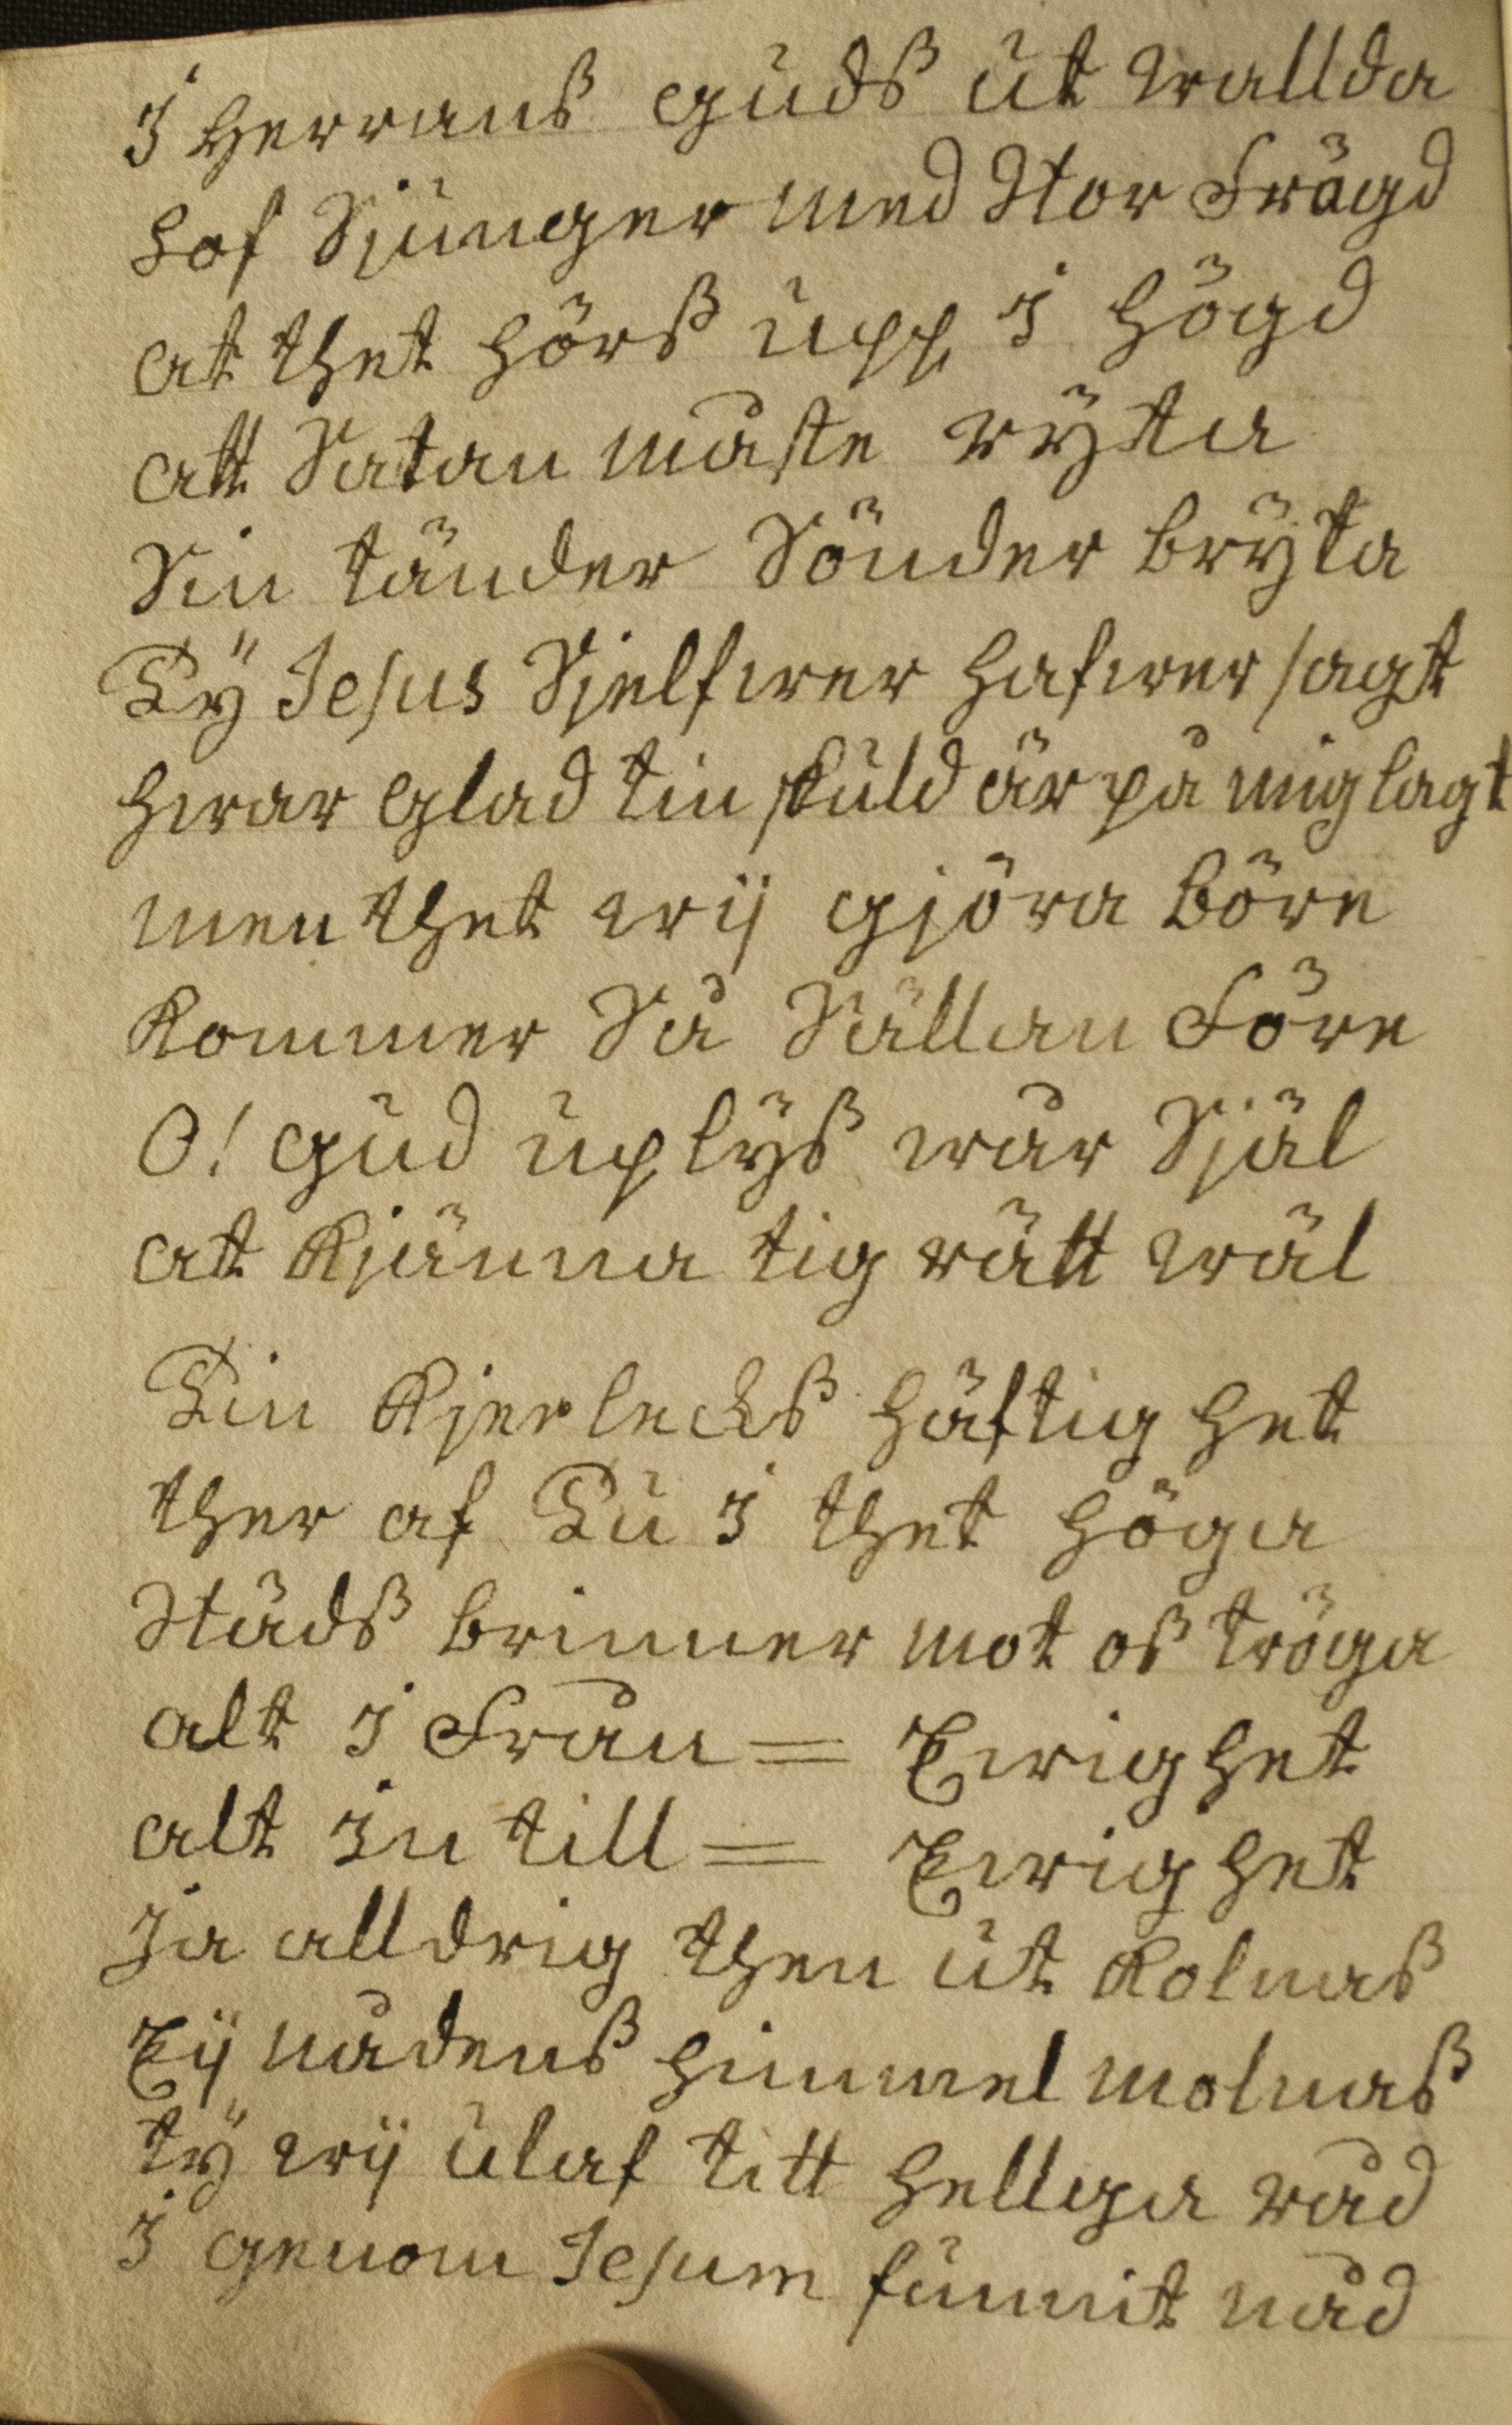 I Herrans Guds ut wallda
hof Sjunger med Stor Frögd
at thet hörs upp i högd
att Satan måste ryta
Sin tänder Sönder bryta
Ty Jesus Sjelfwer hafwer sagt
hwar glad tin skuld är på mig lagt
men thet wij gjöra böre
kommer Så Sällan Före
O! Gud uplys wår Själ
at kjänna tig rätt wäl
Tin Kjerlecks häftig het
ther af Tu i thet höga
Städs brinner mot oss tröga
alt i Från = Ewig het
alt in till = Ewig het
Ja alldrig then ut kolnas
Eij nådens himmel molnas
ty wij utaf titt hellga råd
I genom Jesum funnit nåd